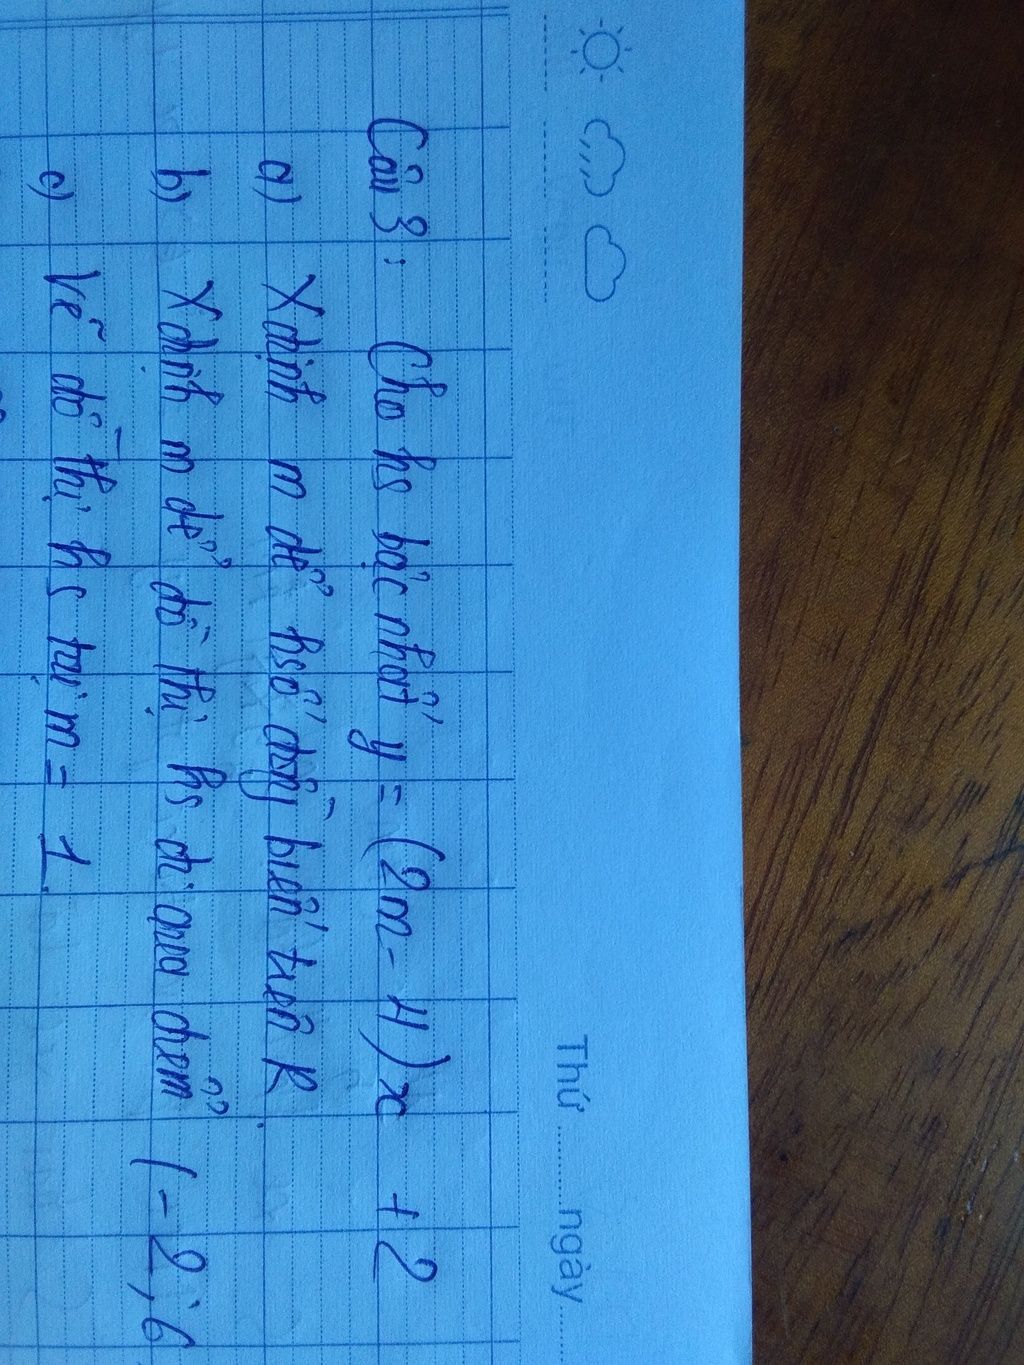 Thứ ..........ngày..........
Câu 3: Cho hs bậc nhất y = (2m - 4)x + 2
a) Xđịnh m để hsố đồng biến trên R.
b) Xđịnh m để đồ thị hs đi qua điểm (-2;6
c) Vẽ đồ thị hs tại m = 1